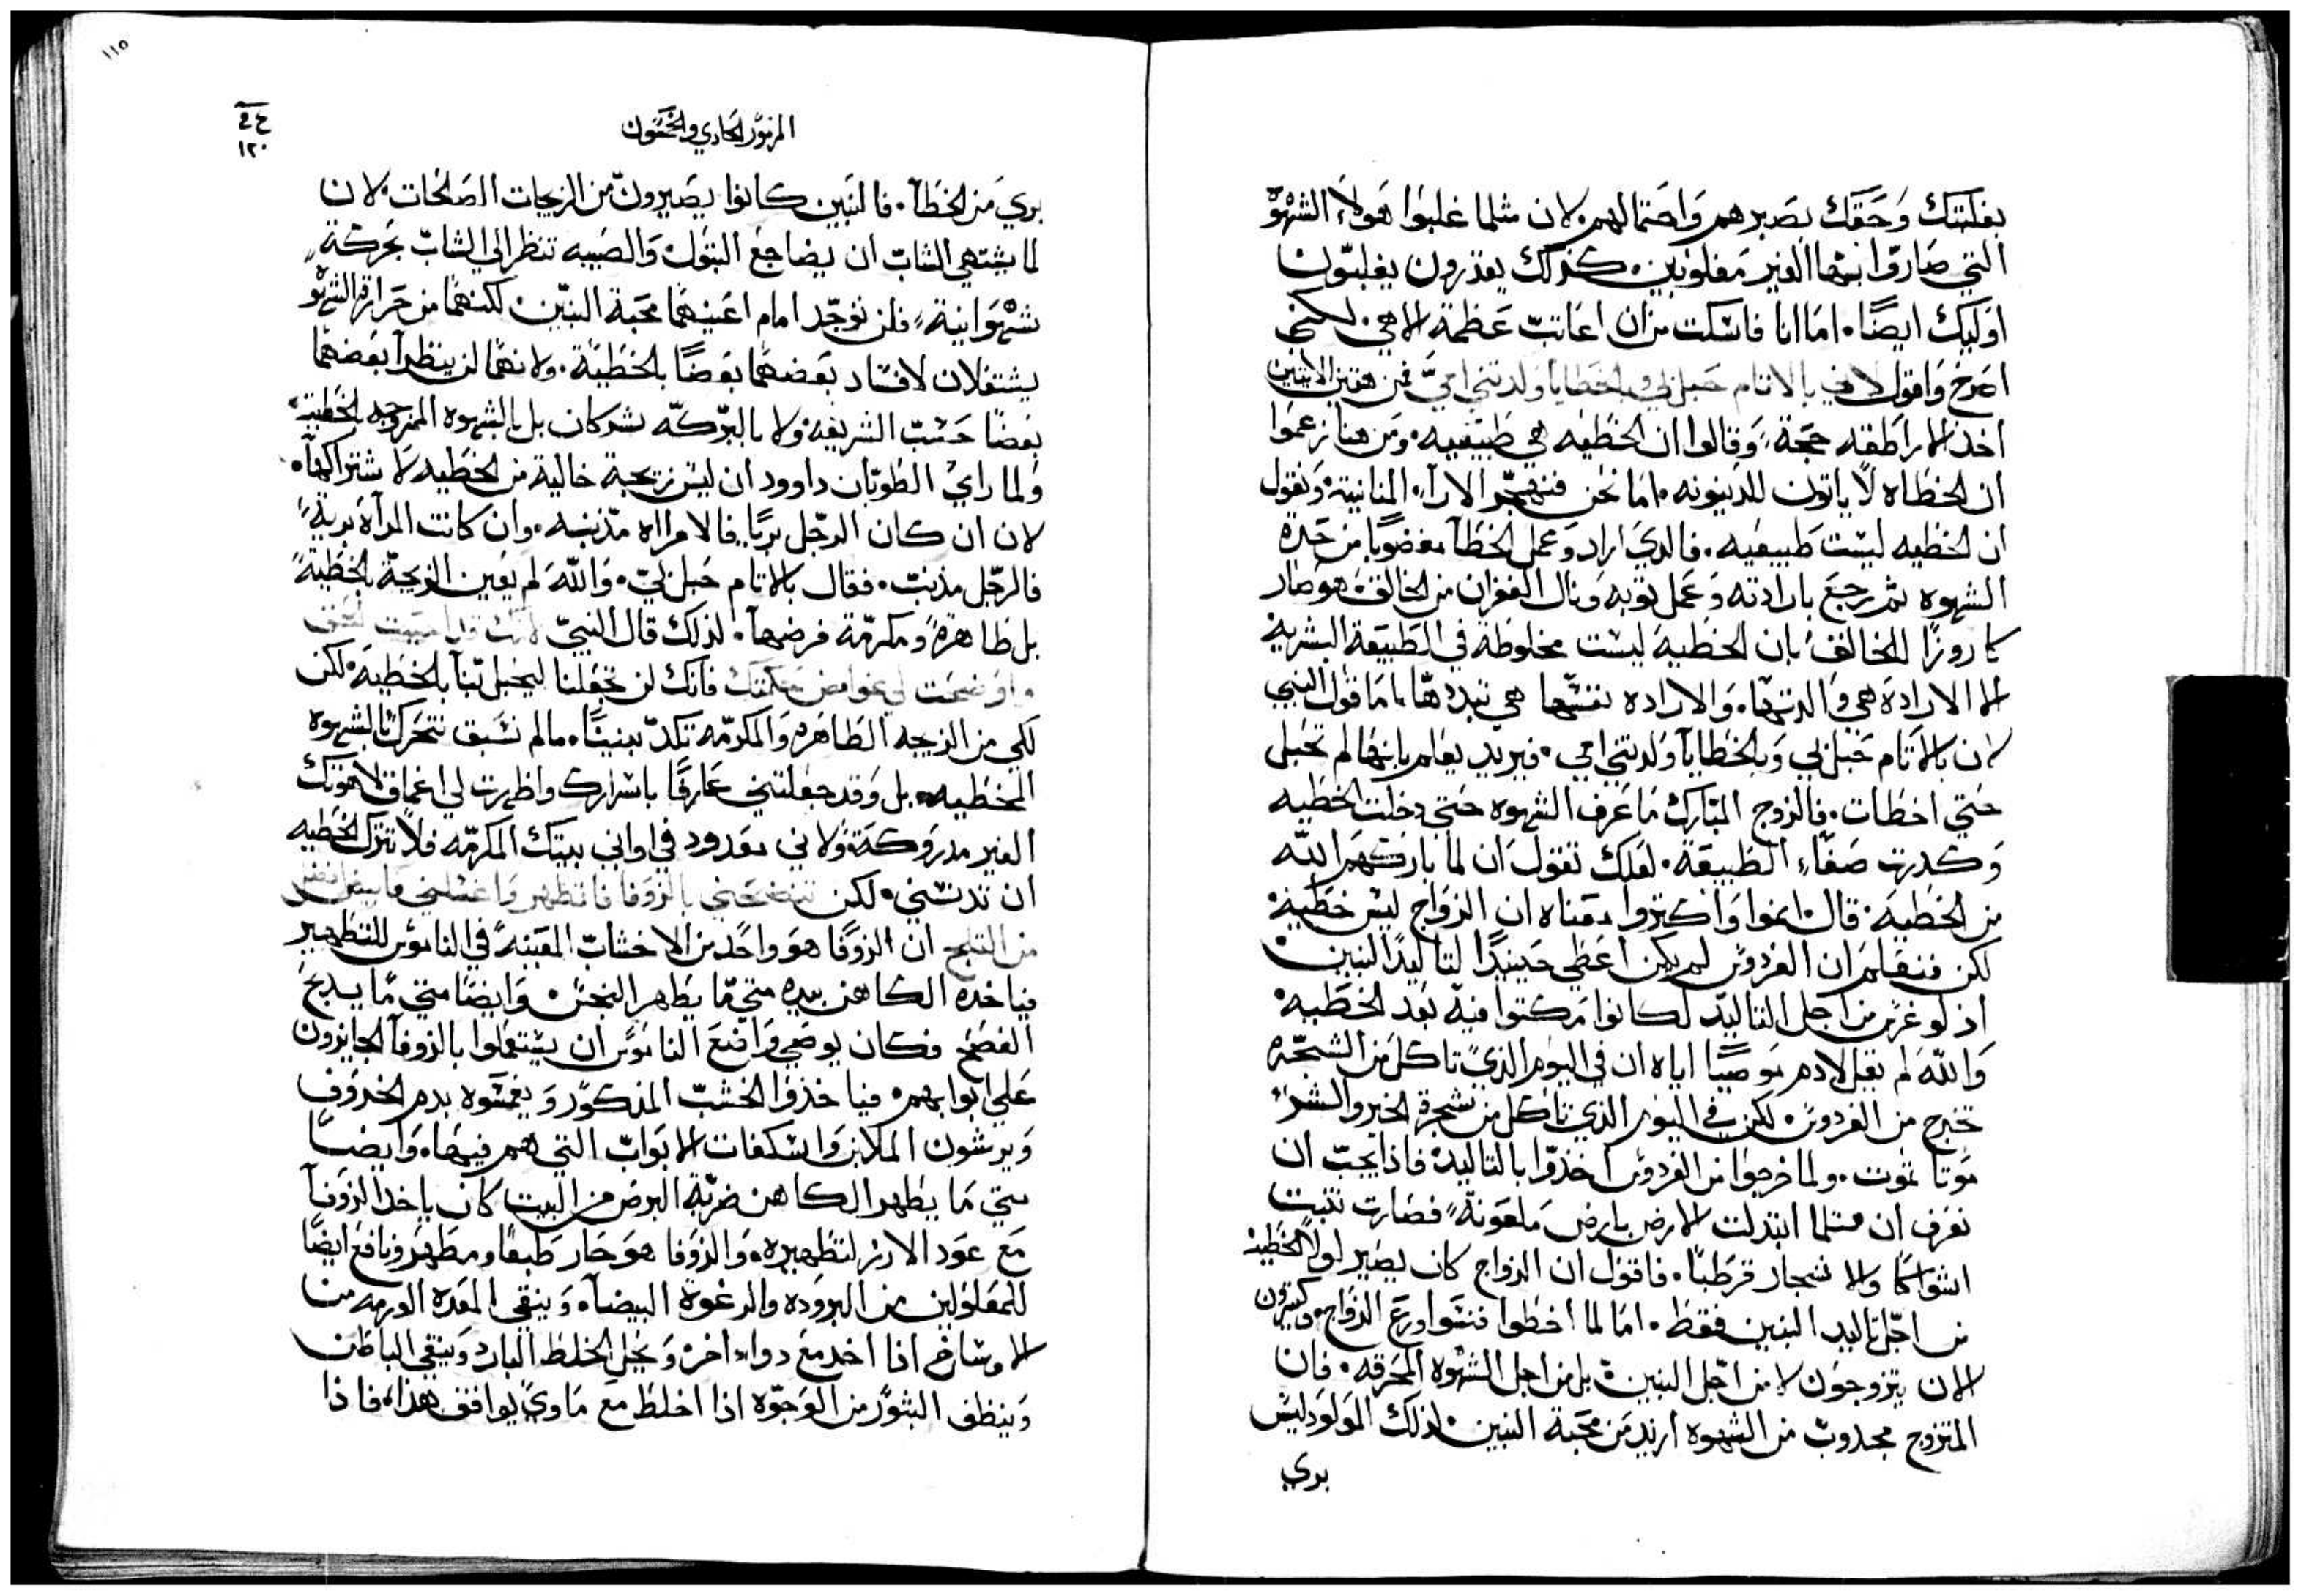 بغلبتك وحقك بصبرهم واحتمالهم لان مثلما غلبوا هولاء الشهوة
التي صاروا بتها الغير مغلوبين. كذلك يقدرون يغلبون
اوليك ايضًا. اما انا فاسكت من ان اعاتب عظمة الاهي. لكني
اصرخ واقول لاني بالاثام حبل بي وبالخطايا ولدتني امي فمن هتين الاثنتين
اخذ الاراطقه حجة، وقالوا ان الخطيه هي طبيعيه. ومن هنا زعموا
ان الخطاه لا ياتون للدينونه. اما نحن فنهجر الارآء المنانية، ونقول
ان الخطيه ليست طبيعيه. فالدي اراد وعمل الخطآ مغضوبًا من حده
الشهوه ثم رجع بارادته وعمل توبه ونال الغفران من الخالق فهو صار
كاروزًا للخالق بان الخطيه ليست مخلوطة في الطبيعة البشرية
الا الارادة هي والدتها. والاراده نفسها هي تبددها. اما قول النبي
لان بالاثام حبل بي وبالخطايا ولدتني امي. فيريد يعلم بانها لم تحبل
حتي اخطات. فالزوج المبارك ما عرف الشهوه حتي دخلت الخطيه
وكدرت صفاء الطبيعة. لعلك تقول ان لما باركتهم الله
من الخطيه. قال انموا واكثروا. معناه ان الزواج ليس خطية
لكن فنعلم ان الفردوس لم يكن اعطي حينيدًا لتاليد البنين
اذ لو غرس من اجل التاليد لكانوا مكتوا فيه بعد الخطيه
والله لم يقل لادم موصيًا اياه ان في اليوم الذي تاكل من الشجره
تخرج من الفردوس. لكن في اليوم الذي تاكل من شجرة الخير والشر
موتا تموت. ولما خرجوا من الفردوس اخذوا بالتاليد. فاذا يجب ان
نعرف ان مثلما ابتدلت الارض بارض ملعونة، فصارت تنبت
اشواكا والا شجار قرطبًا. فاقول ان الزواج كان يصير لولا الخطية
من اجل تاليد البنين فقط. اما لما اخطوا فنسوا ورع الزواج. وكثيرون
الان يتزوجون لا من اجل البنين، بل من اجل الشهوه المحرقه. فان
المتزوج مجدوب من الشهوه ازيد من محبة البنين. لذلك المولود ليس
بري
١١٥
١٢٠
المزمور الحادي والخمسون
بري من الخطآ. فالبنين كانوا يصيرون من الزيجات الصالحات. لان
لما يشتهي الشاب ان يضاجع البتول والصبيه تنظر الي الشاب بحركة
شهوانية، فلن توجد امام اعينهما محبة البنين. لكنهما من حرارة الشهو
يشتغلان لافساد بعضهما بعضًا بالخطية. ولانهما لن ينظرا بعضهما
بعضًا حسب الشريعه، ولا بالبركه يشركان بل بالشهوه الممزوجه بالخطيه
ولما راي الطوبان داوود ان ليس زيجة خالية من الخطيه لاشتراكها.
لان ان كان الرجل بريًا فالامراه مذنبه. وان كانت المرآة برية،
فالرجل مذنب. فقال بالاثام حبل بي. والله لم يعين الزيجة بالخطية
بل طاهرة ومكرمة فرضها. لذلك قال النبي لانك قد احببت الحق
واوضحت لي غوامض حكمتك فانك لن تجعلنا ليحبل بنا بالخطيه، لكن
لكي من الزيجه الطاهره والمكرمه تكد بنينًا. مالم نسبق نتحرك بالشهوه
الخطيه. بل وقد جعلتني عارفًا باسرارك واظهرت لي اعماق لاهوتك
الغير مدروكة، ولاني معدود في اواني بيتك المكرمه فلا تترك الخطيه
ان تدنسني. لكن تنضحني بالزوفا فاتطهر واغسلني فابيض افضل
من الثلج ان الزوفا هو واحد من الاخشاب المعينة في الناموس للتطهير
فياخذه الكاهن بيده متي ما يطهر النجس، وايضًا متي ما يذبح
الفصح فكان يوصي واضع الناموس ان يستعملوا بالزوفا الجايزون
علي ابوابهم، فياخذوا الخشب المذكور ويغمسوه بدم الخروف
ويرشون الملابن واسكفات الابواب التي هم فيها. وايضًا
متي ما يطهر الكاهن ضربة البرص من البيت كان ياخذ الزوفا
مع عود الارز لتطهيره. والزوفا هو حار طبعًا ومطهر ونافع ايضًا
للمعلولين من البروده والرغوة البيضآء وينقي المعده الورمه من
الاوساخ اذا اخد مع دواء اخر، ويحل الخلط البارد وينقي الباطن
وينظف البثور من الوجوه اذا اخلط مع ماوي يوافق هذا، فاذا